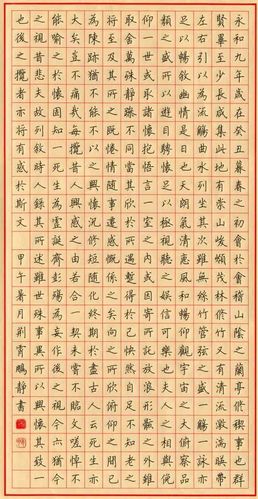 永和九年歲在癸丑暮春之初會於會稽山陰之蘭亭脩稧事也群
賢畢至少長咸集此地有崇山峻領茂林脩竹又有清流激湍暎帶
左右引以為流觴曲水列坐其次雖無絲竹管弦之盛一觴一詠亦
足以暢敘幽情是日也天朗氣清惠風和暢仰觀宇宙之大俯察品
類之盛所以遊目騁懷足以極視聽之娛信可樂也夫人之相與俯
仰一世或取諸懷抱悟言一室之內或因寄所託放浪形骸之外雖
取舍萬殊靜躁不同當其欣於所遇暫得於己快然自足不知老之
將至及其所之既惓情隨事遷感慨係之矣向之所欣俛仰之間已
為陳跡猶不能不以之興懷況脩短隨化終期於盡古人云死生亦
大矣豈不痛哉每攬昔人興感之由若合一契未嘗不臨文嗟悼不
能喻之於懷固知一死生為虛誕齊彭殤為妄作後之視今亦猶今
之視昔悲夫故列敘時人錄其所述雖世殊事異所以興懷其致一
也後之攬者亦將有感於斯文 甲午暑月荊霄鵬靜書